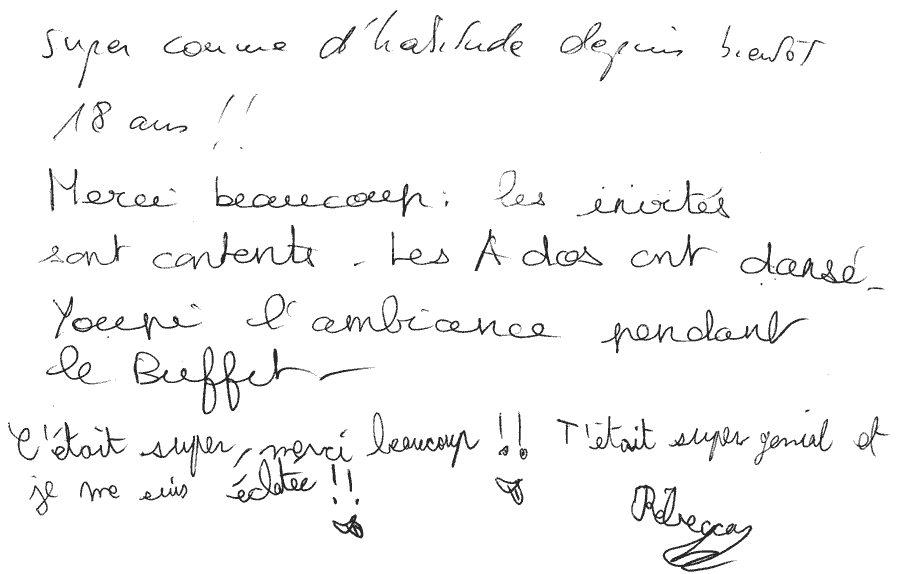 super comme d'habitude depuis bientôt
18 ans !!
Merci beaucoup : les invités
sont contents. Les Ados ont dansé.
Youpi l'ambiance pendant
le Buffet
C'était super, merci beaucoup !! T'était super genial et
je me suis éclatée !!
Rébecca